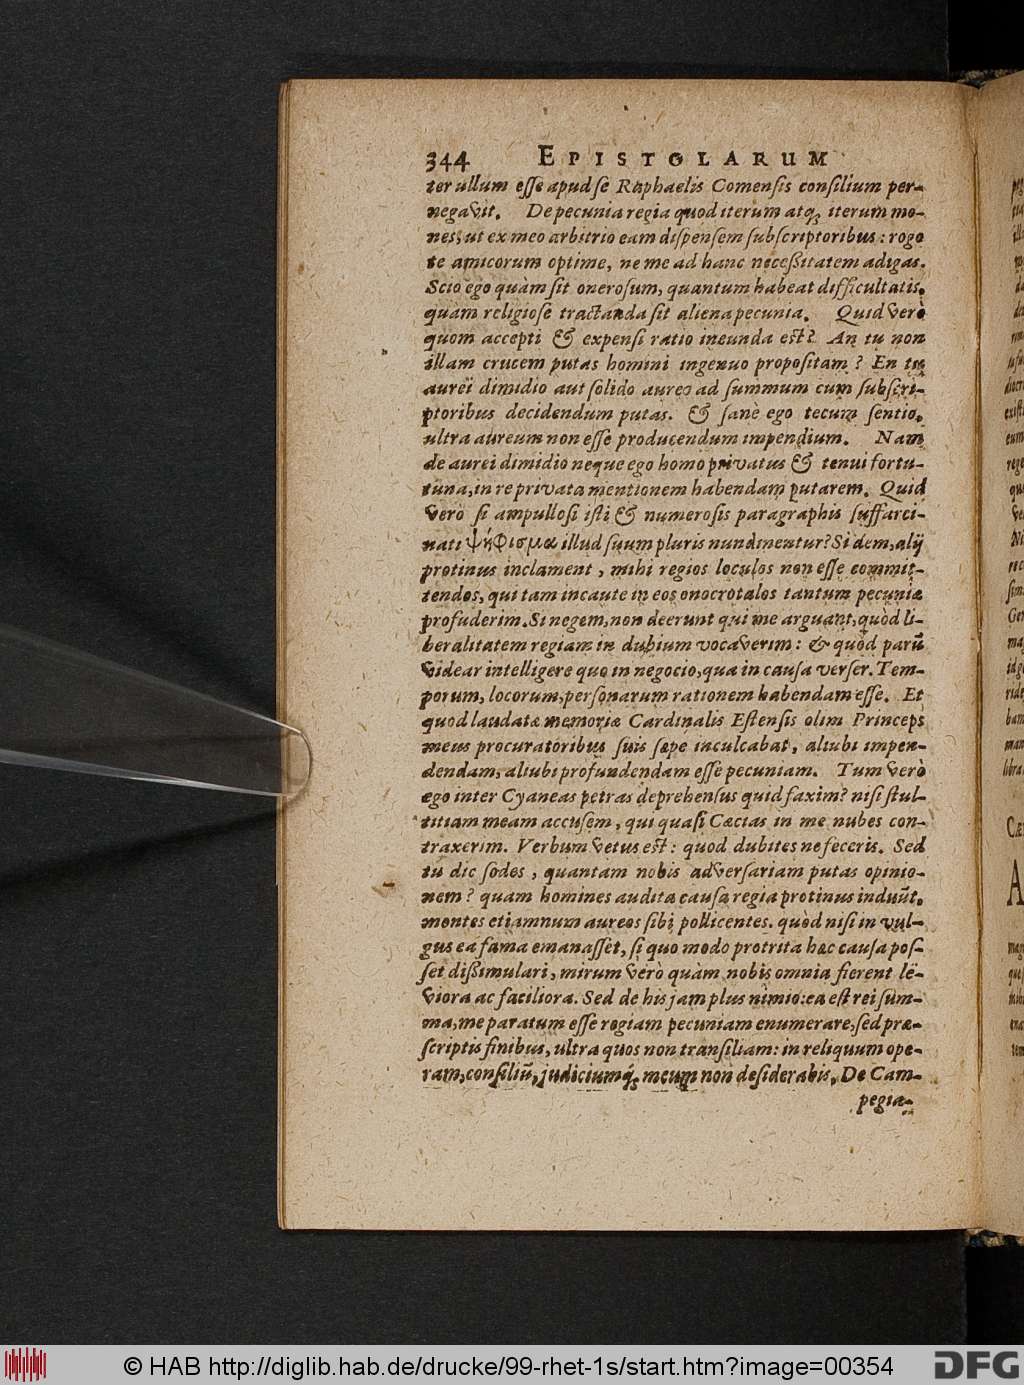 344 EPISTOLARUM
ter ullum esse apud se Raphaelis Comensis consilium per-
negavit. De pecunia regia quod iterum atq; iterum mo-
nes, ut ex meo arbitrio eam dispensem subscriptoribus: rogo
te amicorum optime, ne me ad hanc neceßitatem adigas.
Scio ego quàm sit onerosum, quantum habeat difficultatis,
quàm religiose tractanda sit aliena pecunia. Quid verò
quom accepti & expensi ratio ineunda est? An tu non
illam crucem putas homini ingenuo propositam? En tu
aurei dimidio aut solido aureo ad summum cum subscri-
ptoribus decidendum putas. & sanè ego tecum sentio,
ultra aureum non esse producendum impendium. Nam
de aurei dimidio neque ego homo privatus & tenui fortu-
tuna, in re privata mentionem habendam putarem. Quid
verò si ampullosi isti & numerosis paragraphis suffarci-
nati ψήφισμα illud suum pluris nundinentur? Si dem, alij
protinus inclament, mihi regios loculos non esse commit-
tendos, qui tam incaute in eos onocrotalos tantum pecuniæ
profuderim. Si negem, non deerunt qui me arguant, quòd li-
beralitatem regiam in dubium vocaverim: & quòd parũ
videar intelligere quo in negocio, qua in causa verser. Tem-
porum, locorum, personarum rationem habendam esse. Et
quod laudatæ memoriæ Cardinalis Estensis olim Princeps
meus procuratoribus suis sæpe inculcabat, alicubi impen-
dendam, alicubi profundendam esse pecuniam. Tum verò
ego inter Cyaneas petras deprehensus quid faxim? nisi stul-
titiam meam accusem, qui quasi Cæcias in me nubes con-
traxerim. Verbum vetus est: quod dubites ne feceris. Sed
tu dic sodes, quantam nobis adversariam putas opinio-
nem? quam homines audita causa regia protinus induũt,
montes etiamnum aureos sibi pollicentes. quòd nisi in vul-
gus ea fama emanasset, si quo modo protrita hæc causa pos-
set dißimulari, mirum verò quàm nobis omnia fierent le-
viora ac faciliora. Sed de his jam plus nimio: ea est rei sum-
ma, me paratum esse regiam pecuniam enumerare, sed præ-
scriptis finibus, ultra quos non transiliam: in reliquum ope-
ram, consiliũ, judiciumq́; meum non desiderabis. De Cam-
pegia-
© HAB http://diglib.hab.de/drucke/99-rhet-1s/start.htm?image=00354
DFG